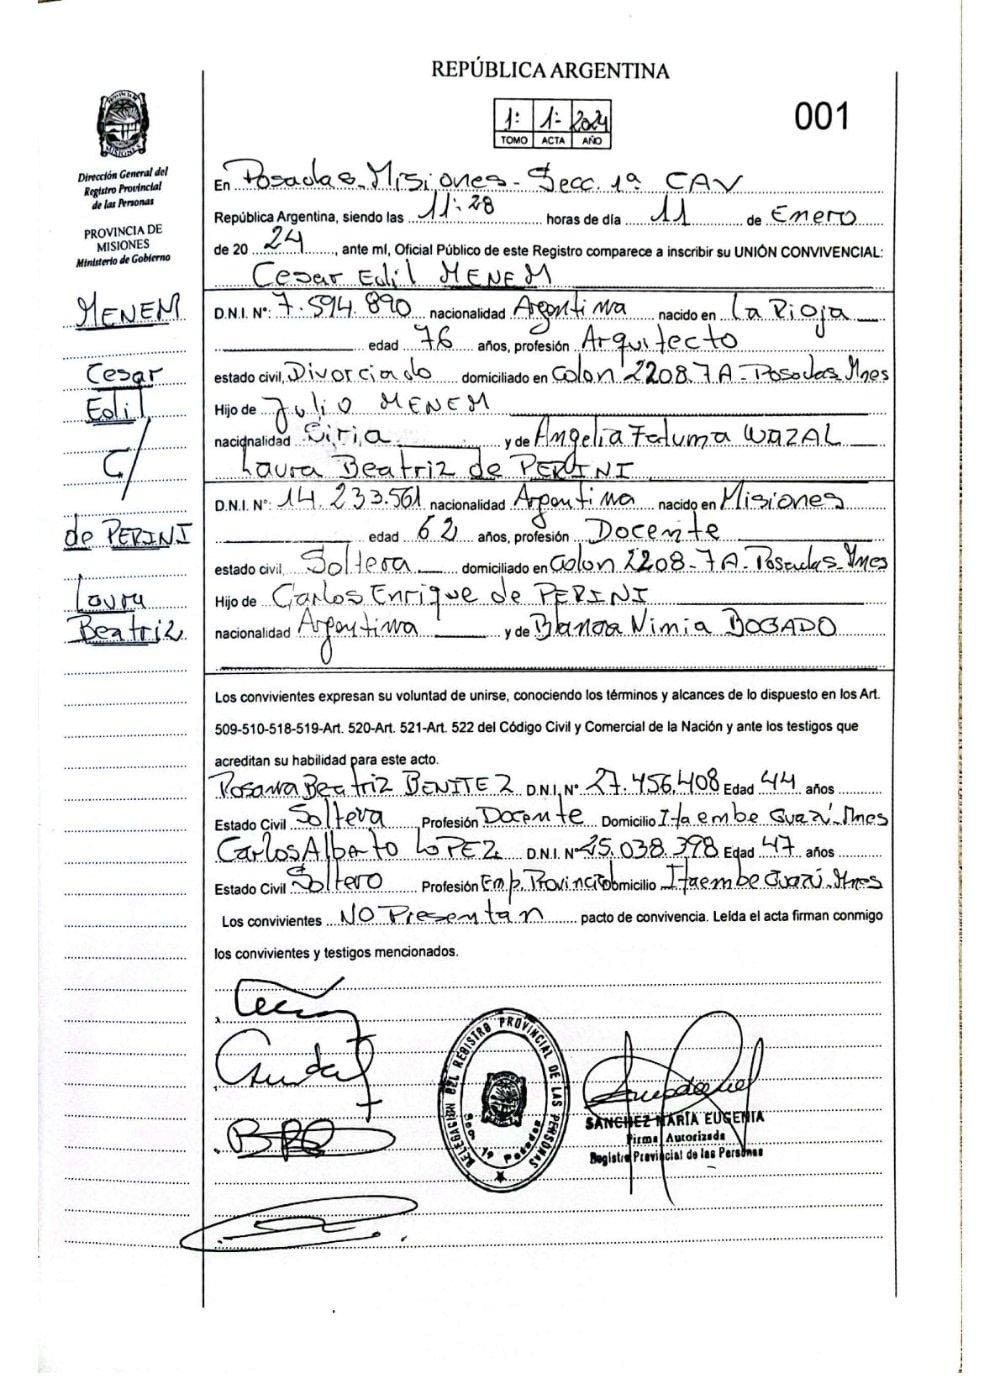 REPÚBLICA ARGENTINA
1: 1: 2024
TOMO ACTA AÑO
001
Dirección General del
Registro Provincial
de las Personas
PROVINCIA DE
MISIONES
Ministerio de Gobierno
MENEM
Cesar
Edil
C/
de PERINI
Laura
Beatriz
En Posadas-Misiones-Secc. 1ª CAV
República Argentina, siendo las 11:28 horas de día 11 de Enero
de 20 24, ante mí, Oficial Público de este Registro comparece a inscribir su UNIÓN CONVIVENCIAL:
Cesar Edil MENEM
D.N.I. N°: 7.594.890 nacionalidad Argentina nacido en La Rioja
edad 76 años, profesión Arquitecto
estado civil, Divorciado domiciliado en Colon 2208.7A-Posadas Mnes
Hijo de Julio MENEM
nacionalidad Siria y de Angelia Faduma WAZAL
Laura Beatriz de PERINI
D.N.I. N°: 14.233.561 nacionalidad Argentina nacido en Misiones
edad 62 años, profesión Docente
estado civil, Soltera domiciliado en Colon 2208-7A-Posadas-Mnes
Hijo de Carlos Enrique de PERINI
nacionalidad Argentina y de Blanca Nimia BOGADO
Los convivientes expresan su voluntad de unirse, conociendo los términos y alcances de lo dispuesto en los Art.
509-510-518-519-Art. 520-Art. 521-Art. 522 del Código Civil y Comercial de la Nación y ante los testigos que
acreditan su habilidad para este acto.
Rosana Beatriz BENITEZ D.N.I, N° 27.456.408 Edad 44 años
Estado Civil Soltera Profesión Docente Domicilio Itaembe Guazú-Mnes
Carlos Alberto LOPEZ D.N.I. N° 25.038.398 Edad 47 años
Estado Civil Soltero Profesión Emp. Provincial Domicilio Itaembe Guazú-Mnes
Los convivientes NO Presentan pacto de convivencia. Leída el acta firman conmigo
los convivientes y testigos mencionados.
DELEGACION DEL REGISTRO PROVINCIAL DE LAS PERSONAS
Sec. 1ª Posadas
SANCHEZ MARÍA EUGENIA
Firma Autorizada
Registro Provincial de las Personas